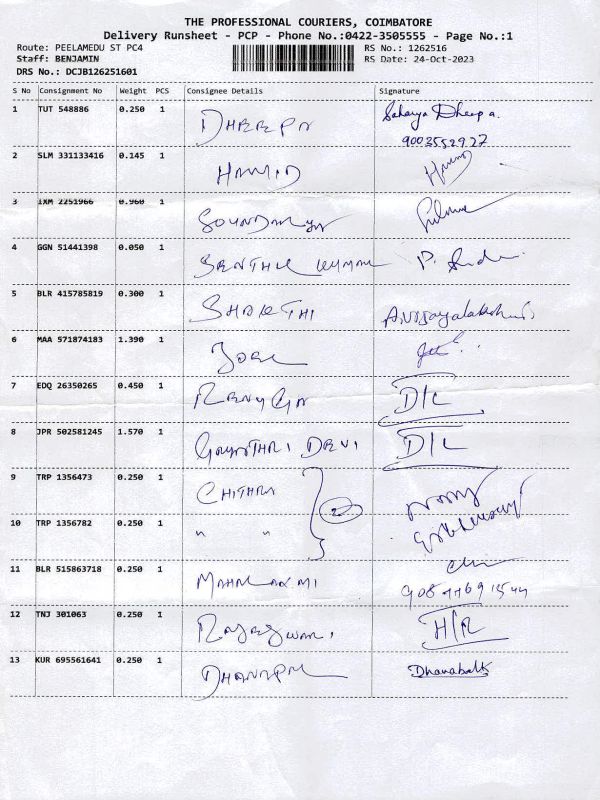 THE PROFESSIONAL COURIERS, COIMBATORE
Delivery Runsheet - PCP - Phone No.:0422-3505555 - Page No.:1
Route: PEELAMEDU ST PC4 RS No.: 1262516
Staff: BENJAMIN RS Date: 24-Oct-2023
DRS No.: DCJB126251601
S No Consignment No Weight PCS Consignee Details Signature
1 TUT 548886 0.250 1 DHEEPA Saharya Dheepa.
9003552927
2 SLM 331133416 0.145 1 HAMID
3 IXM 2251966 0.960 1 SOUNDARYA
4 GGN 51441398 0.050 1 SENTHIL KUMAR
5 BLR 415785819 0.300 1 SHAKTHI A.Vijayalakshmi
6 MAA 571874183 1.390 1 JOEL
7 EDQ 26350265 0.450 1 RENUGA D/L
8 JPR 502581245 1.570 1 GAYATHRI DEVI D/L
9 TRP 1356473 0.250 1 CHITHRA
2
10 TRP 1356782 0.250 1 " "
11 BLR 515863718 0.250 1 MAHALAXMI
12 TNJ 301063 0.250 1 RAJESWARI H/R
13 KUR 695561641 0.250 1 DHANAPAL Dhanabal